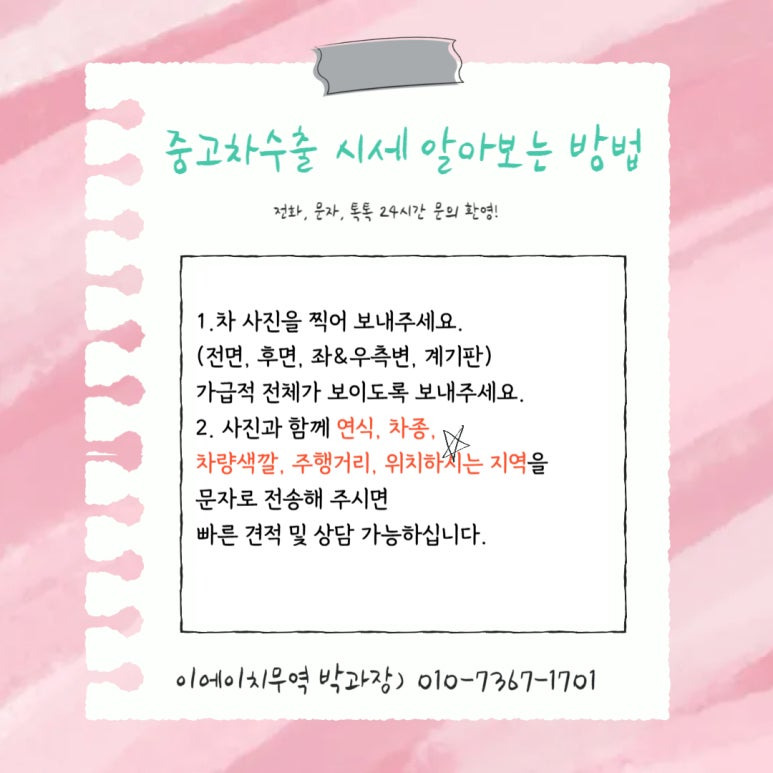 중고차수출 시세 알아보는 방법
전화, 문자, 톡톡 24시간 문의 환영!
1.차 사진을 찍어 보내주세요.
(전면, 후면, 좌&우측변, 계기판)
가급적 전체가 보이도록 보내주세요.
2. 사진과 함께 연식, 차종,
차량색깔, 주행거리, 위치하시는 지역을
문자로 전송해 주시면
빠른 견적 및 상담 가능하십니다.
이에이치무역 박과장) 010-7367-1701